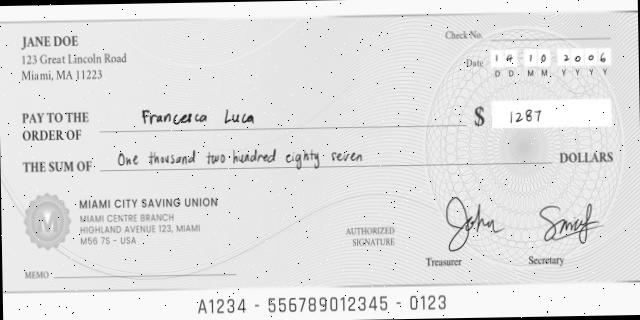 JANE DOE
123 Great Lincoln Road
Miami, MA J1223
Check No.
Date 14 10 2006
D D M M Y Y Y Y
PAY TO THE ORDER OF Francesca Luca $ 1287
THE SUM OF One thousand two hundred eighty seven DOLLARS
MIAMI CITY SAVING UNION
MIAMI CENTRE BRANCH
HIGHLAND AVENUE 123, MIAMI
M56 7S - USA
AUTHORIZED
SIGNATURE
John
Treasurer
Secretary
MEMO
A1234 - 556789012345 - 0123